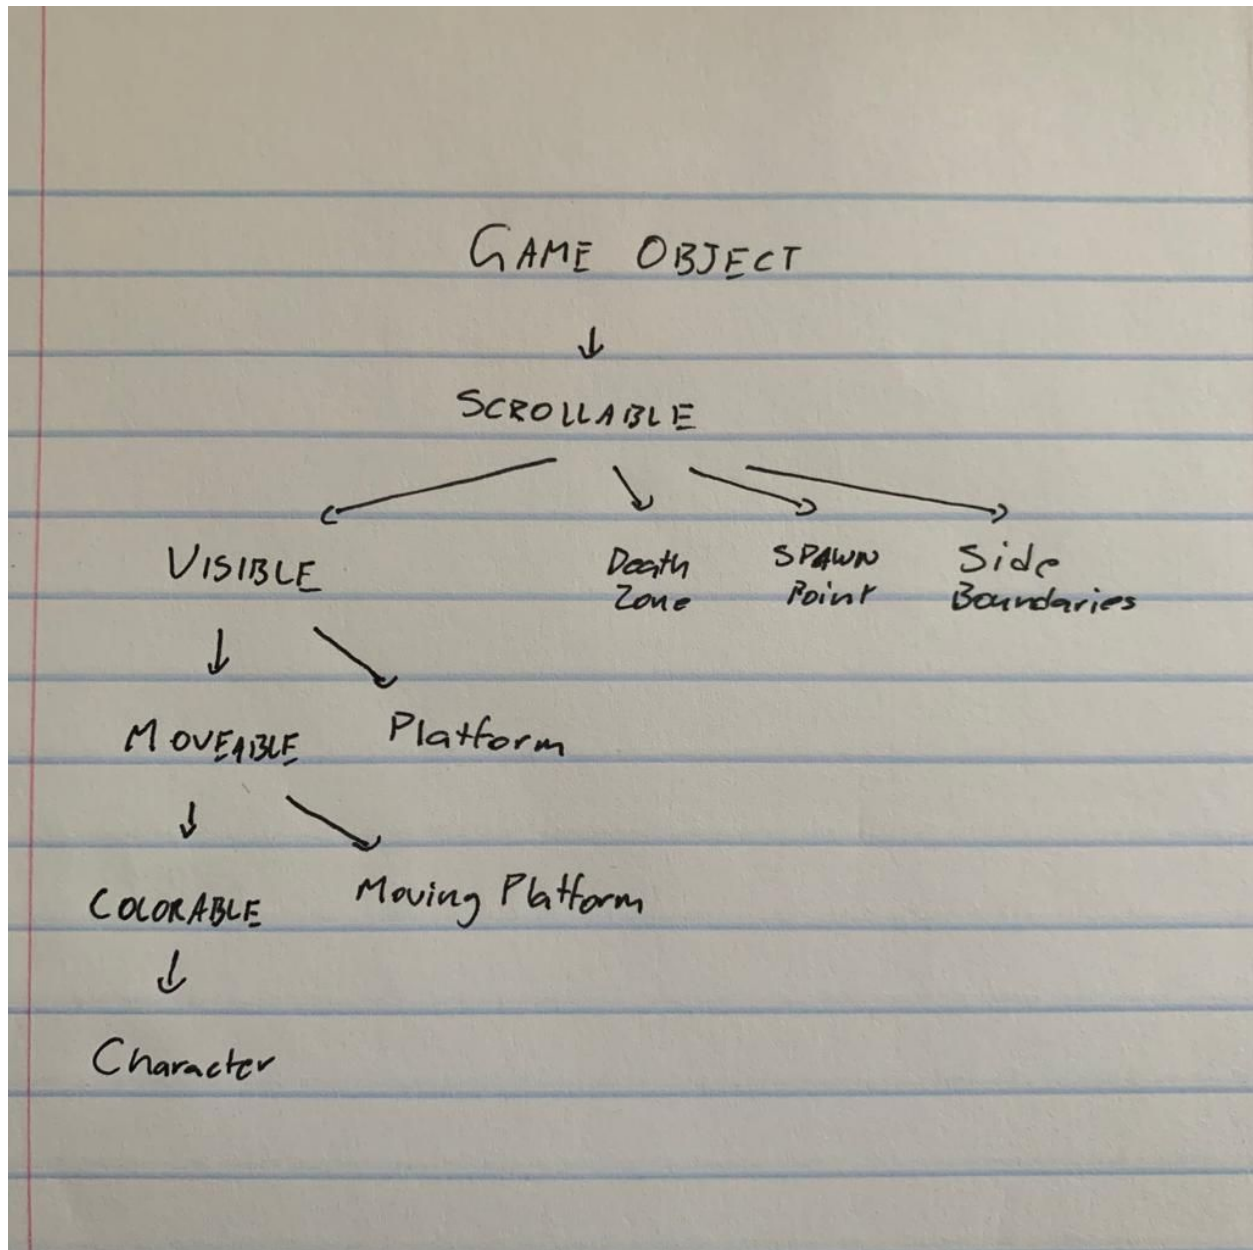 GAME OBJECT
SCROLLABLE
VISIBLE
Death
Zone
SPAWN
Point
Side
Boundaries
MOVEABLE
Platform
COLORABLE
Moving Platform
Character